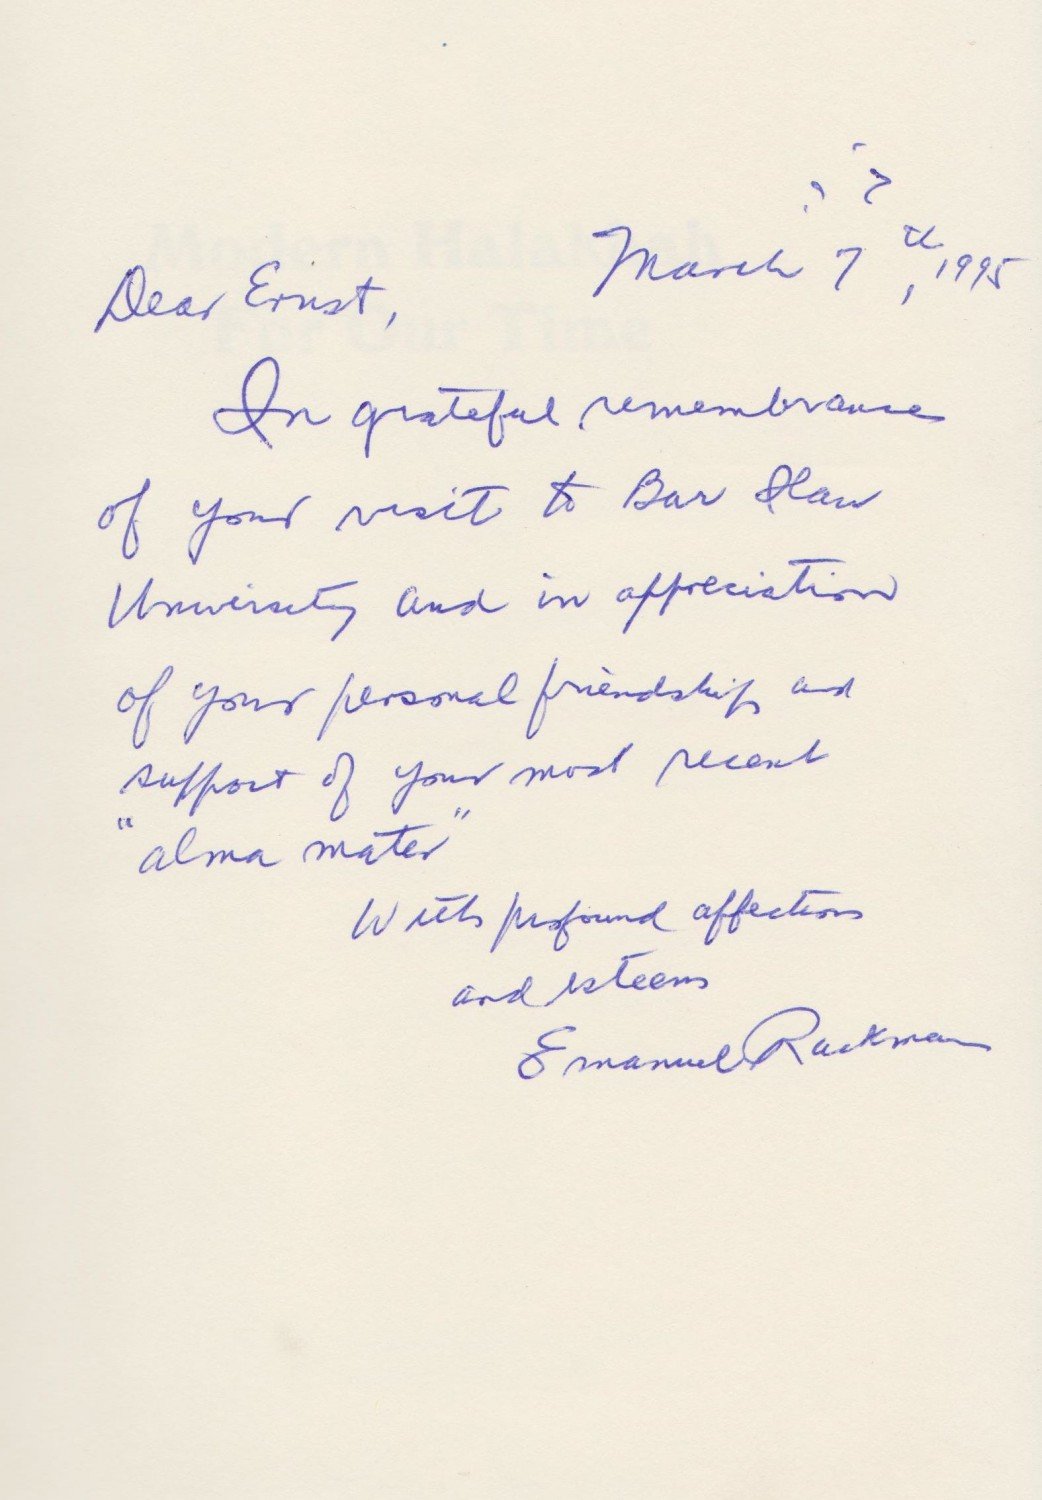 March 7th, 1995
Dear Ernst,
In grateful remembrance
of your visit to Bar Ilan
University and in appreciation
of your personal friendship and
support of your most recent
"alma mater"
With profound affection
and esteem
Emanuel Rackman